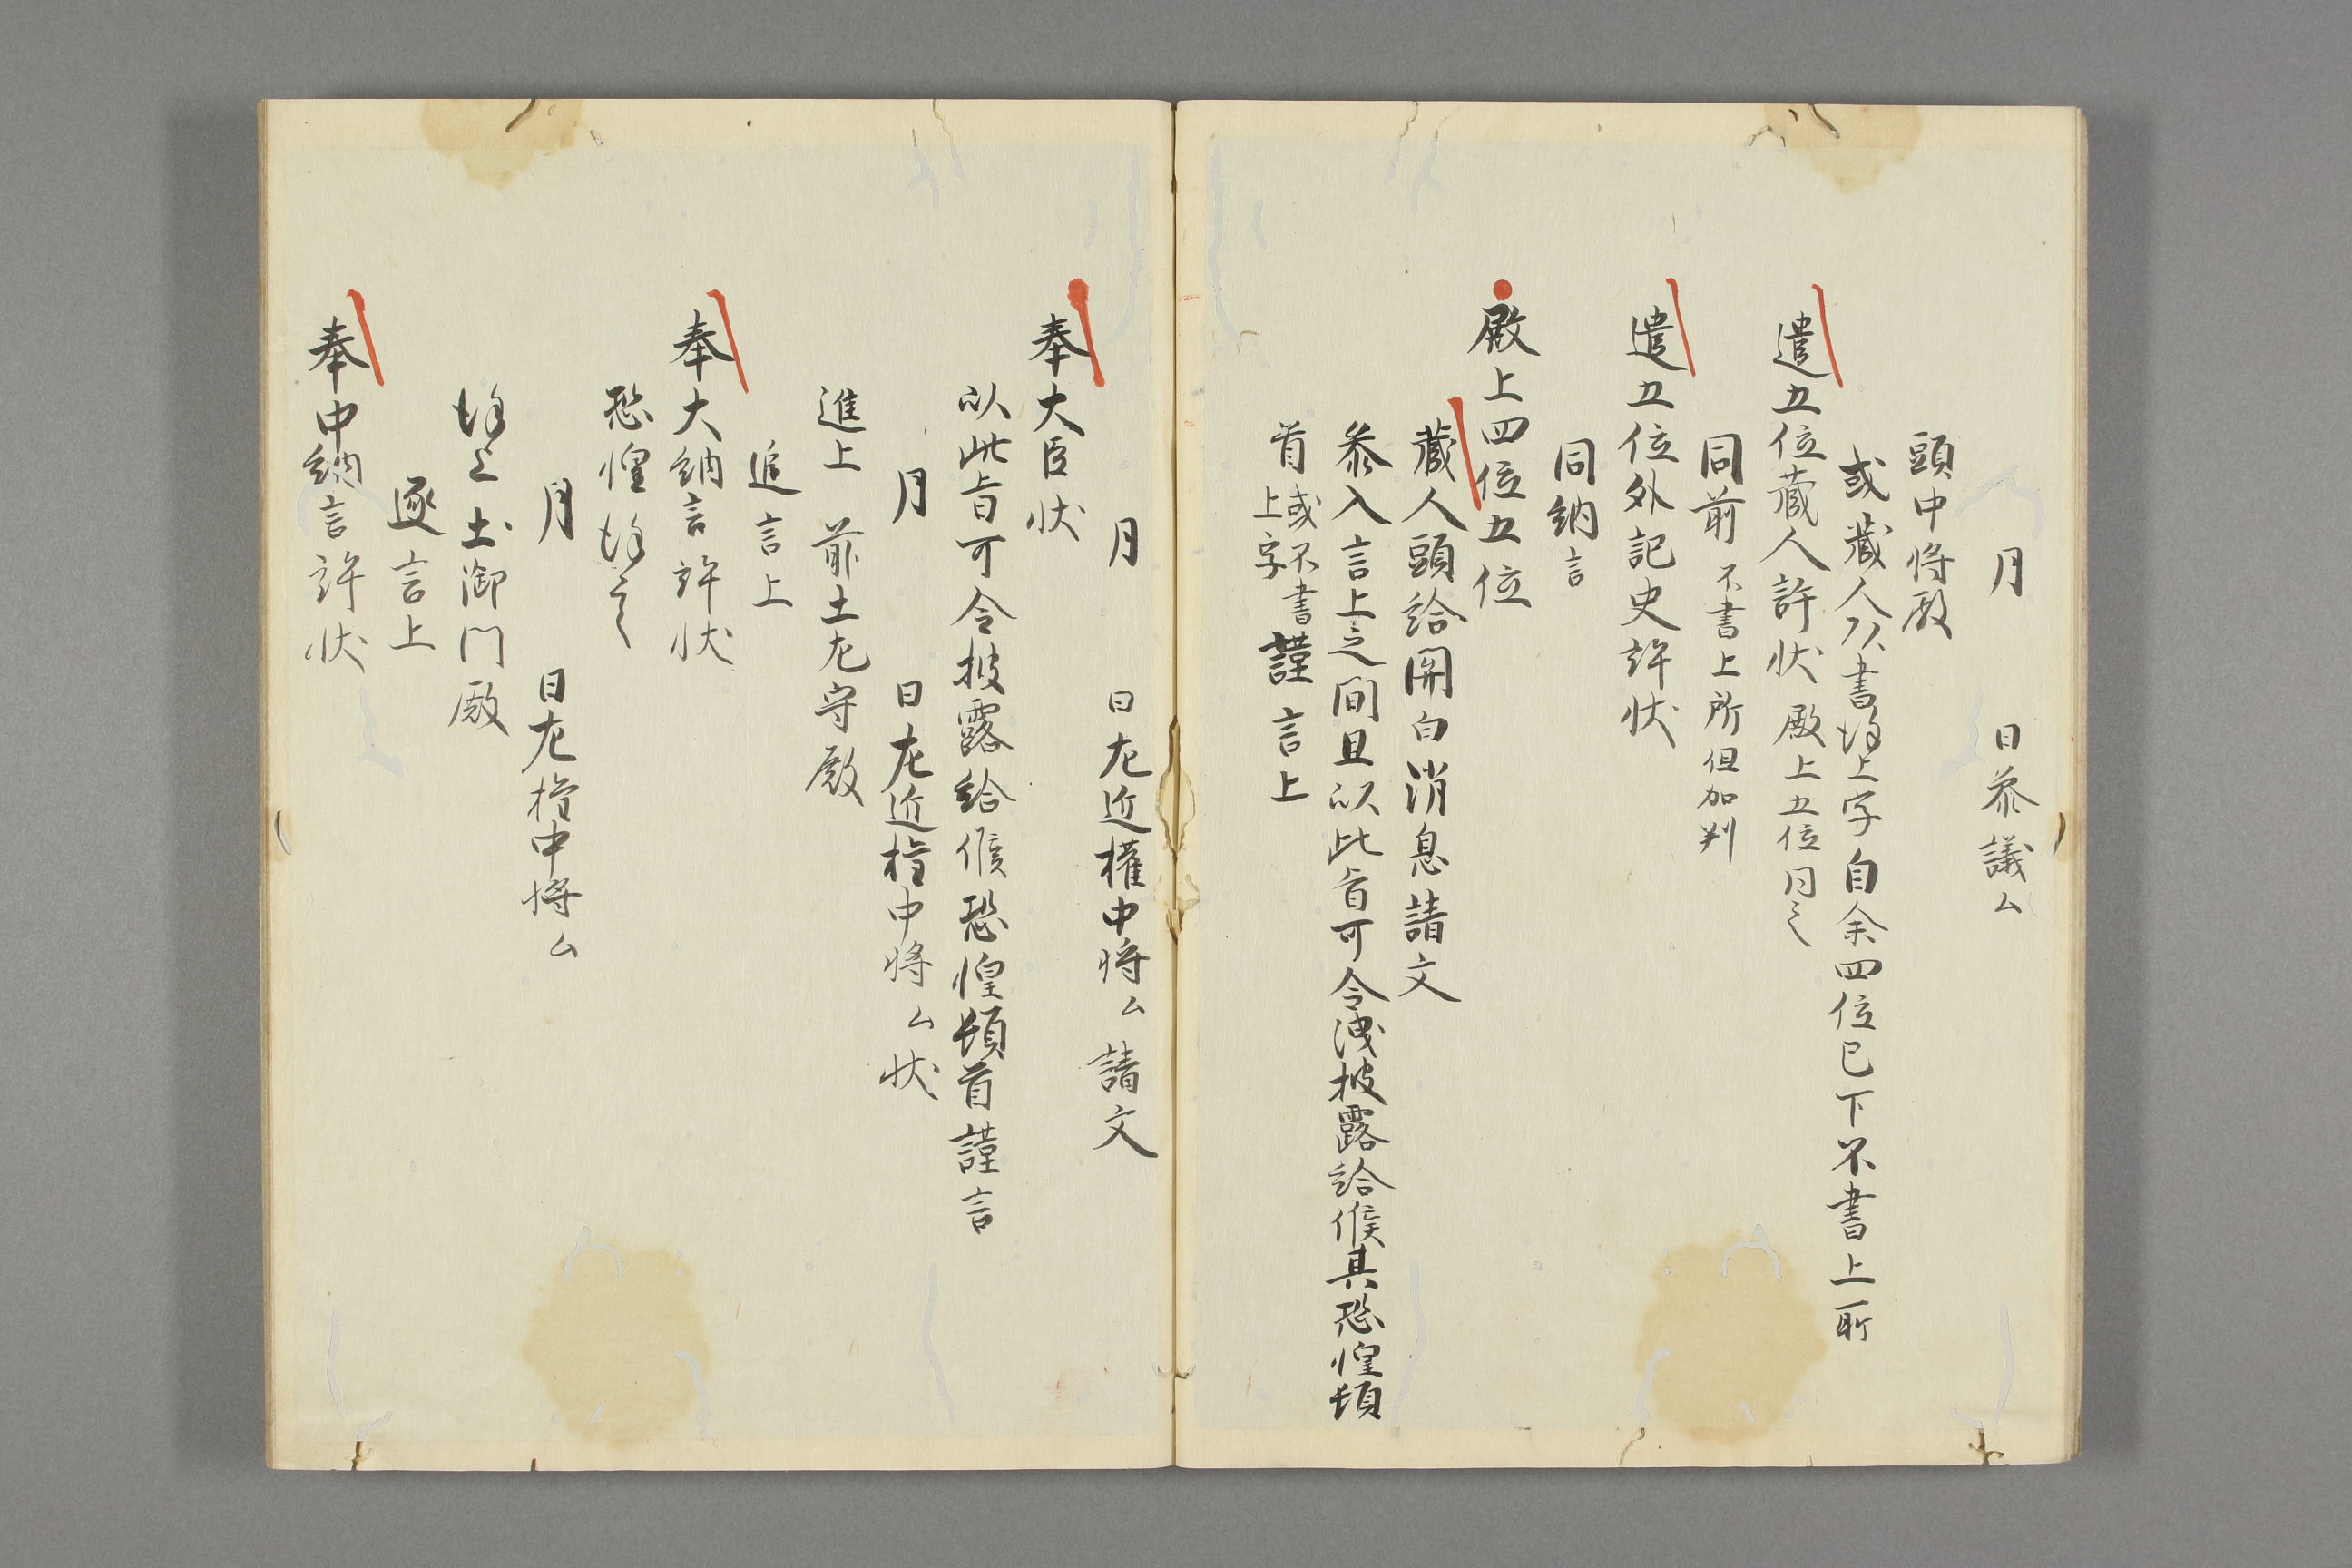 月　日参議厶
頭中将殿
或蔵人八書謹上字自余四位已下不書上所
遣五位蔵人許状殿上五位同之
同前不書上所但加判
遣五位外記史許状
同納言
殿上四位五位
蔵人頭給関白消息請文
参入言上之間且以此旨可令洩披露給候其恐惶頓
首或不書上字謹言上
月　日左近権中将厶請文
奉大臣状
以此旨可令披露給候恐惶頓首謹言
月　日左近権中将厶状
進上　前土左守殿
追言上
奉大納言許状
恐惶謹言
月　日左権中将厶
謹上土御門殿
逐言上
奉中納言許状